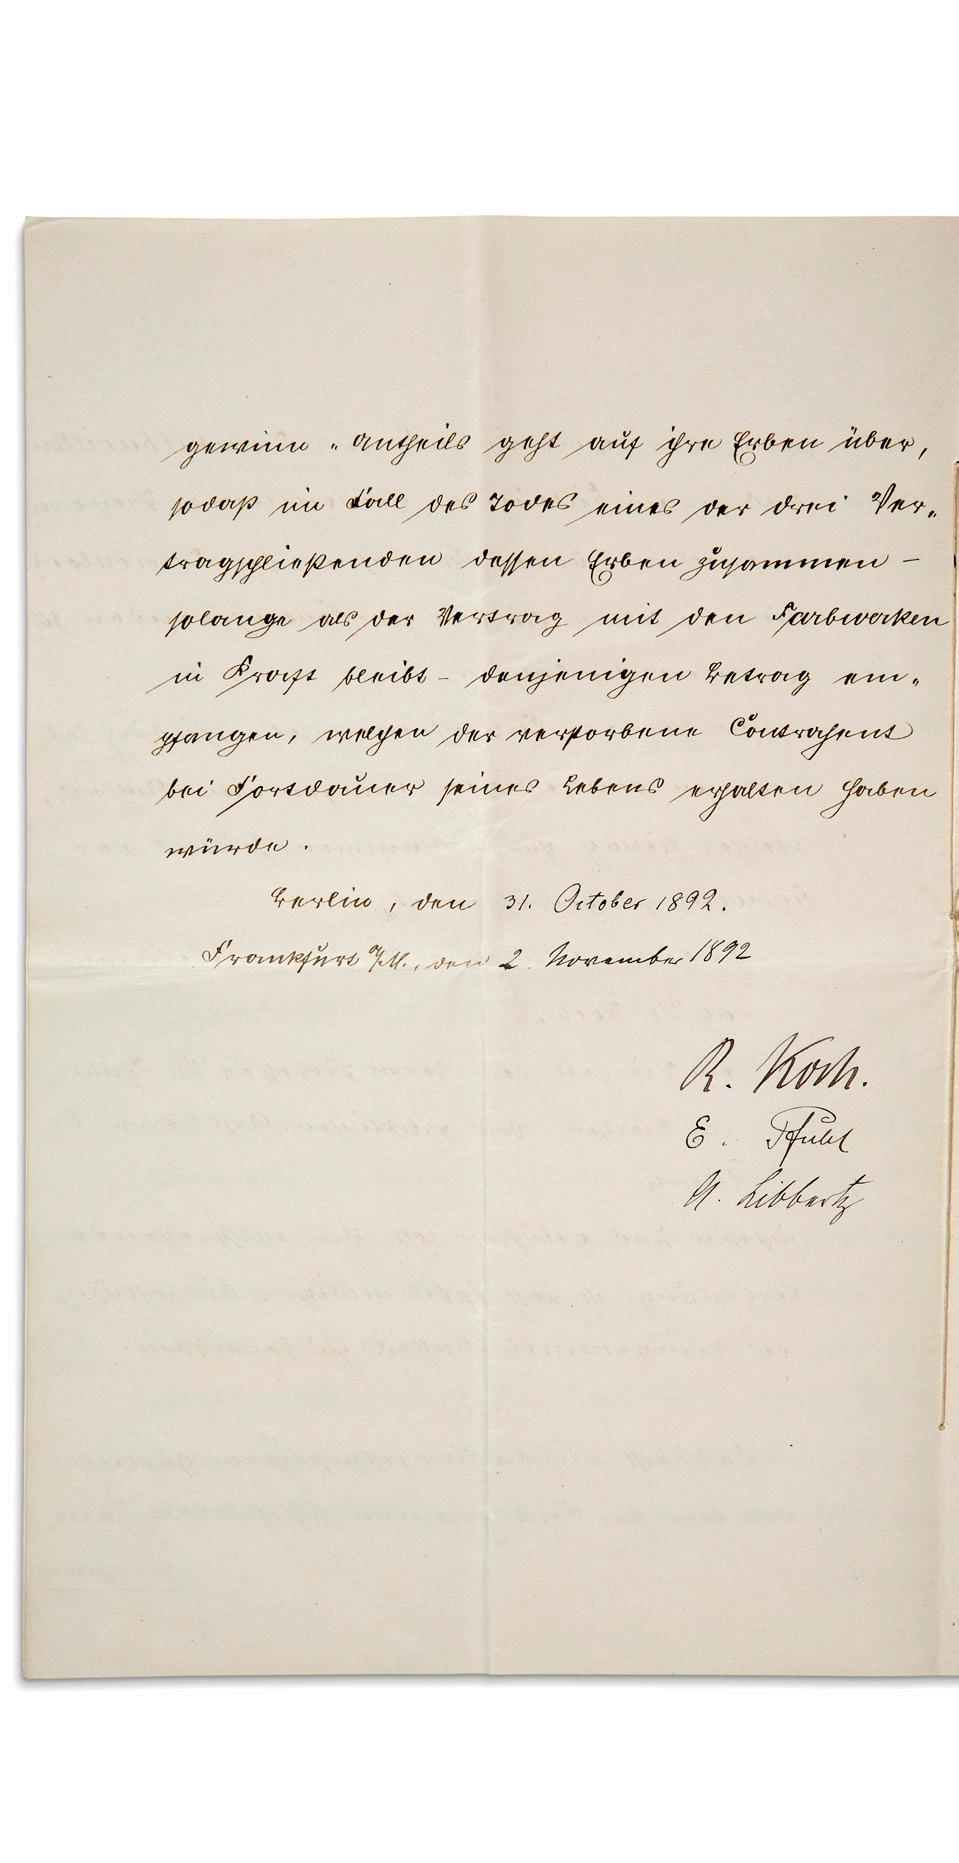 gewinn-Antheils geht auf ihre Erben über,
sodaß im Fall des Todes eines der drei Ver-
tragschließenden dessen Erben zusammen –
solange als der Vertrag mit den Farbwerken
in Kraft bleibt – denjenigen Betrag em-
pfangen, welchen der verstorbene Contrahent
bei Fortdauer seines Lebens erhalten haben
würde.
Berlin, den 31. October 1892.
Frankfurt a/M., den 2. November 1892
R. Koch.
E. Pfuhl
A. Libbertz